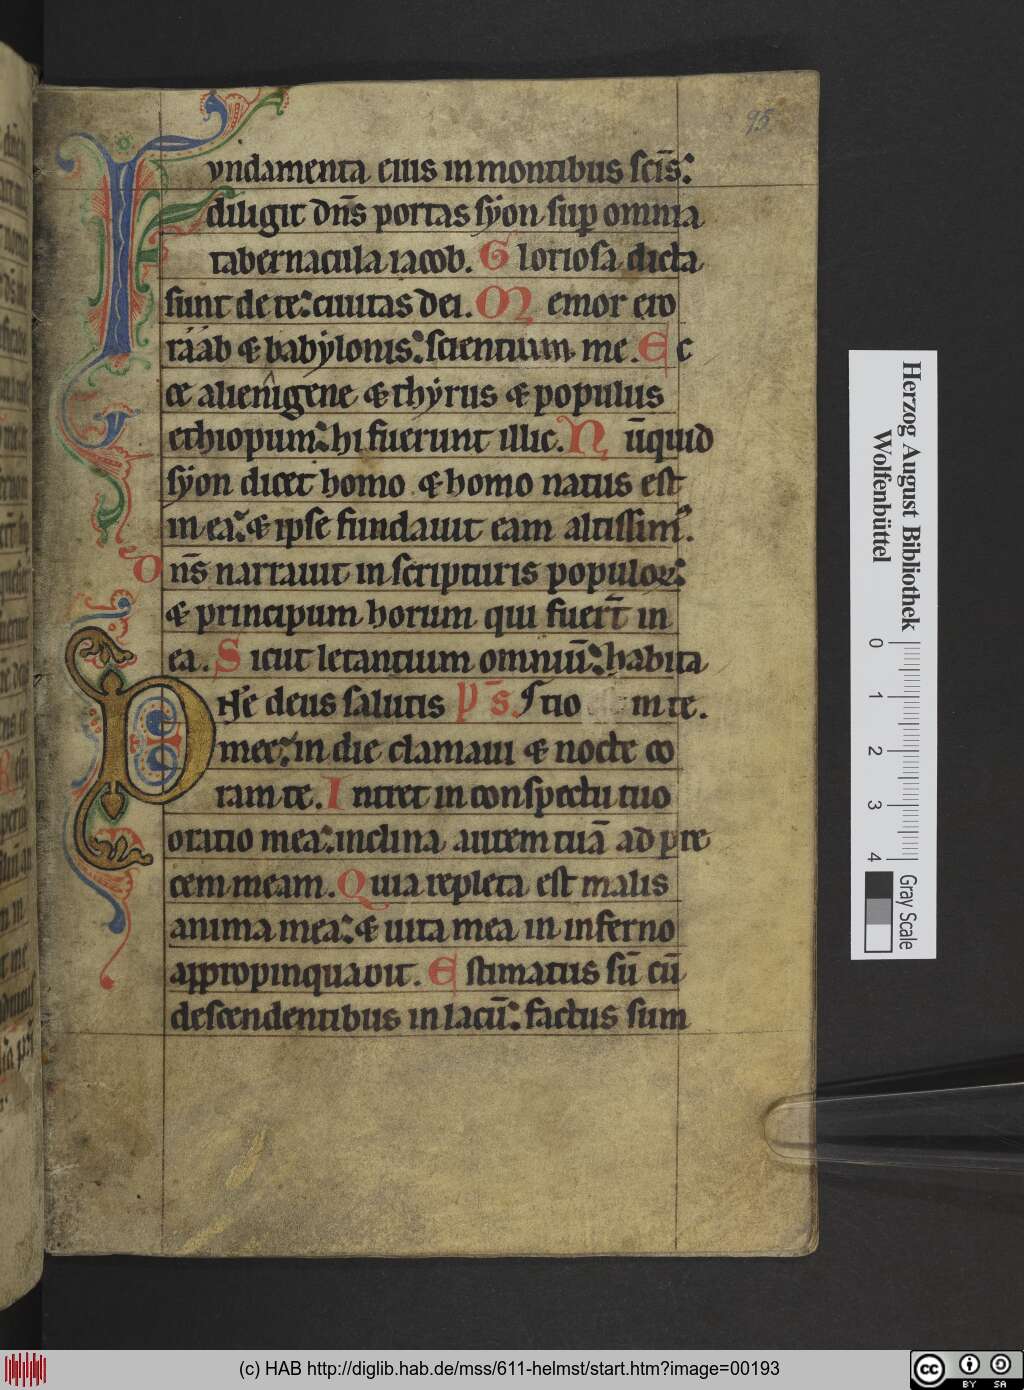 95
Fundamenta eius in montibus sc̄is:
diligit dn̄s portas syon sup omnia
tabernacula iacob. Gloriosa dicta
sunt de te: ciuitas dei. Memor ero
raab & babylonis: scientium me. Ec
ce alienigene & thyrus & populus
ethiopum: hi fuerunt illic. Nūquid
syon dicet homo & homo natus est
in ea: & ipse fundauit eam altissimꝰ.
Dn̄s narrauit in scripturis populoꝝ:
& principum horum qui fuer̄t in
ea. Sicut letantium omniū: habita
Dn̄e deus salutis p̄s. tio in te.
mee: in die clamaui & nocte co
ram te. Intret in conspectu tuo
oratio mea: inclina aurem tuā ad pre
cem meam. Quia repleta est malis
anima mea: & uita mea in inferno
appropinquauit. Estimatus sū cū
descendentibus in lacū: factus sum
Herzog August Bibliothek
Wolfenbüttel
0 1 2 3 4
Gray Scale
(c) HAB http://diglib.hab.de/mss/611-helmst/start.htm?image=00193
cc BY SA